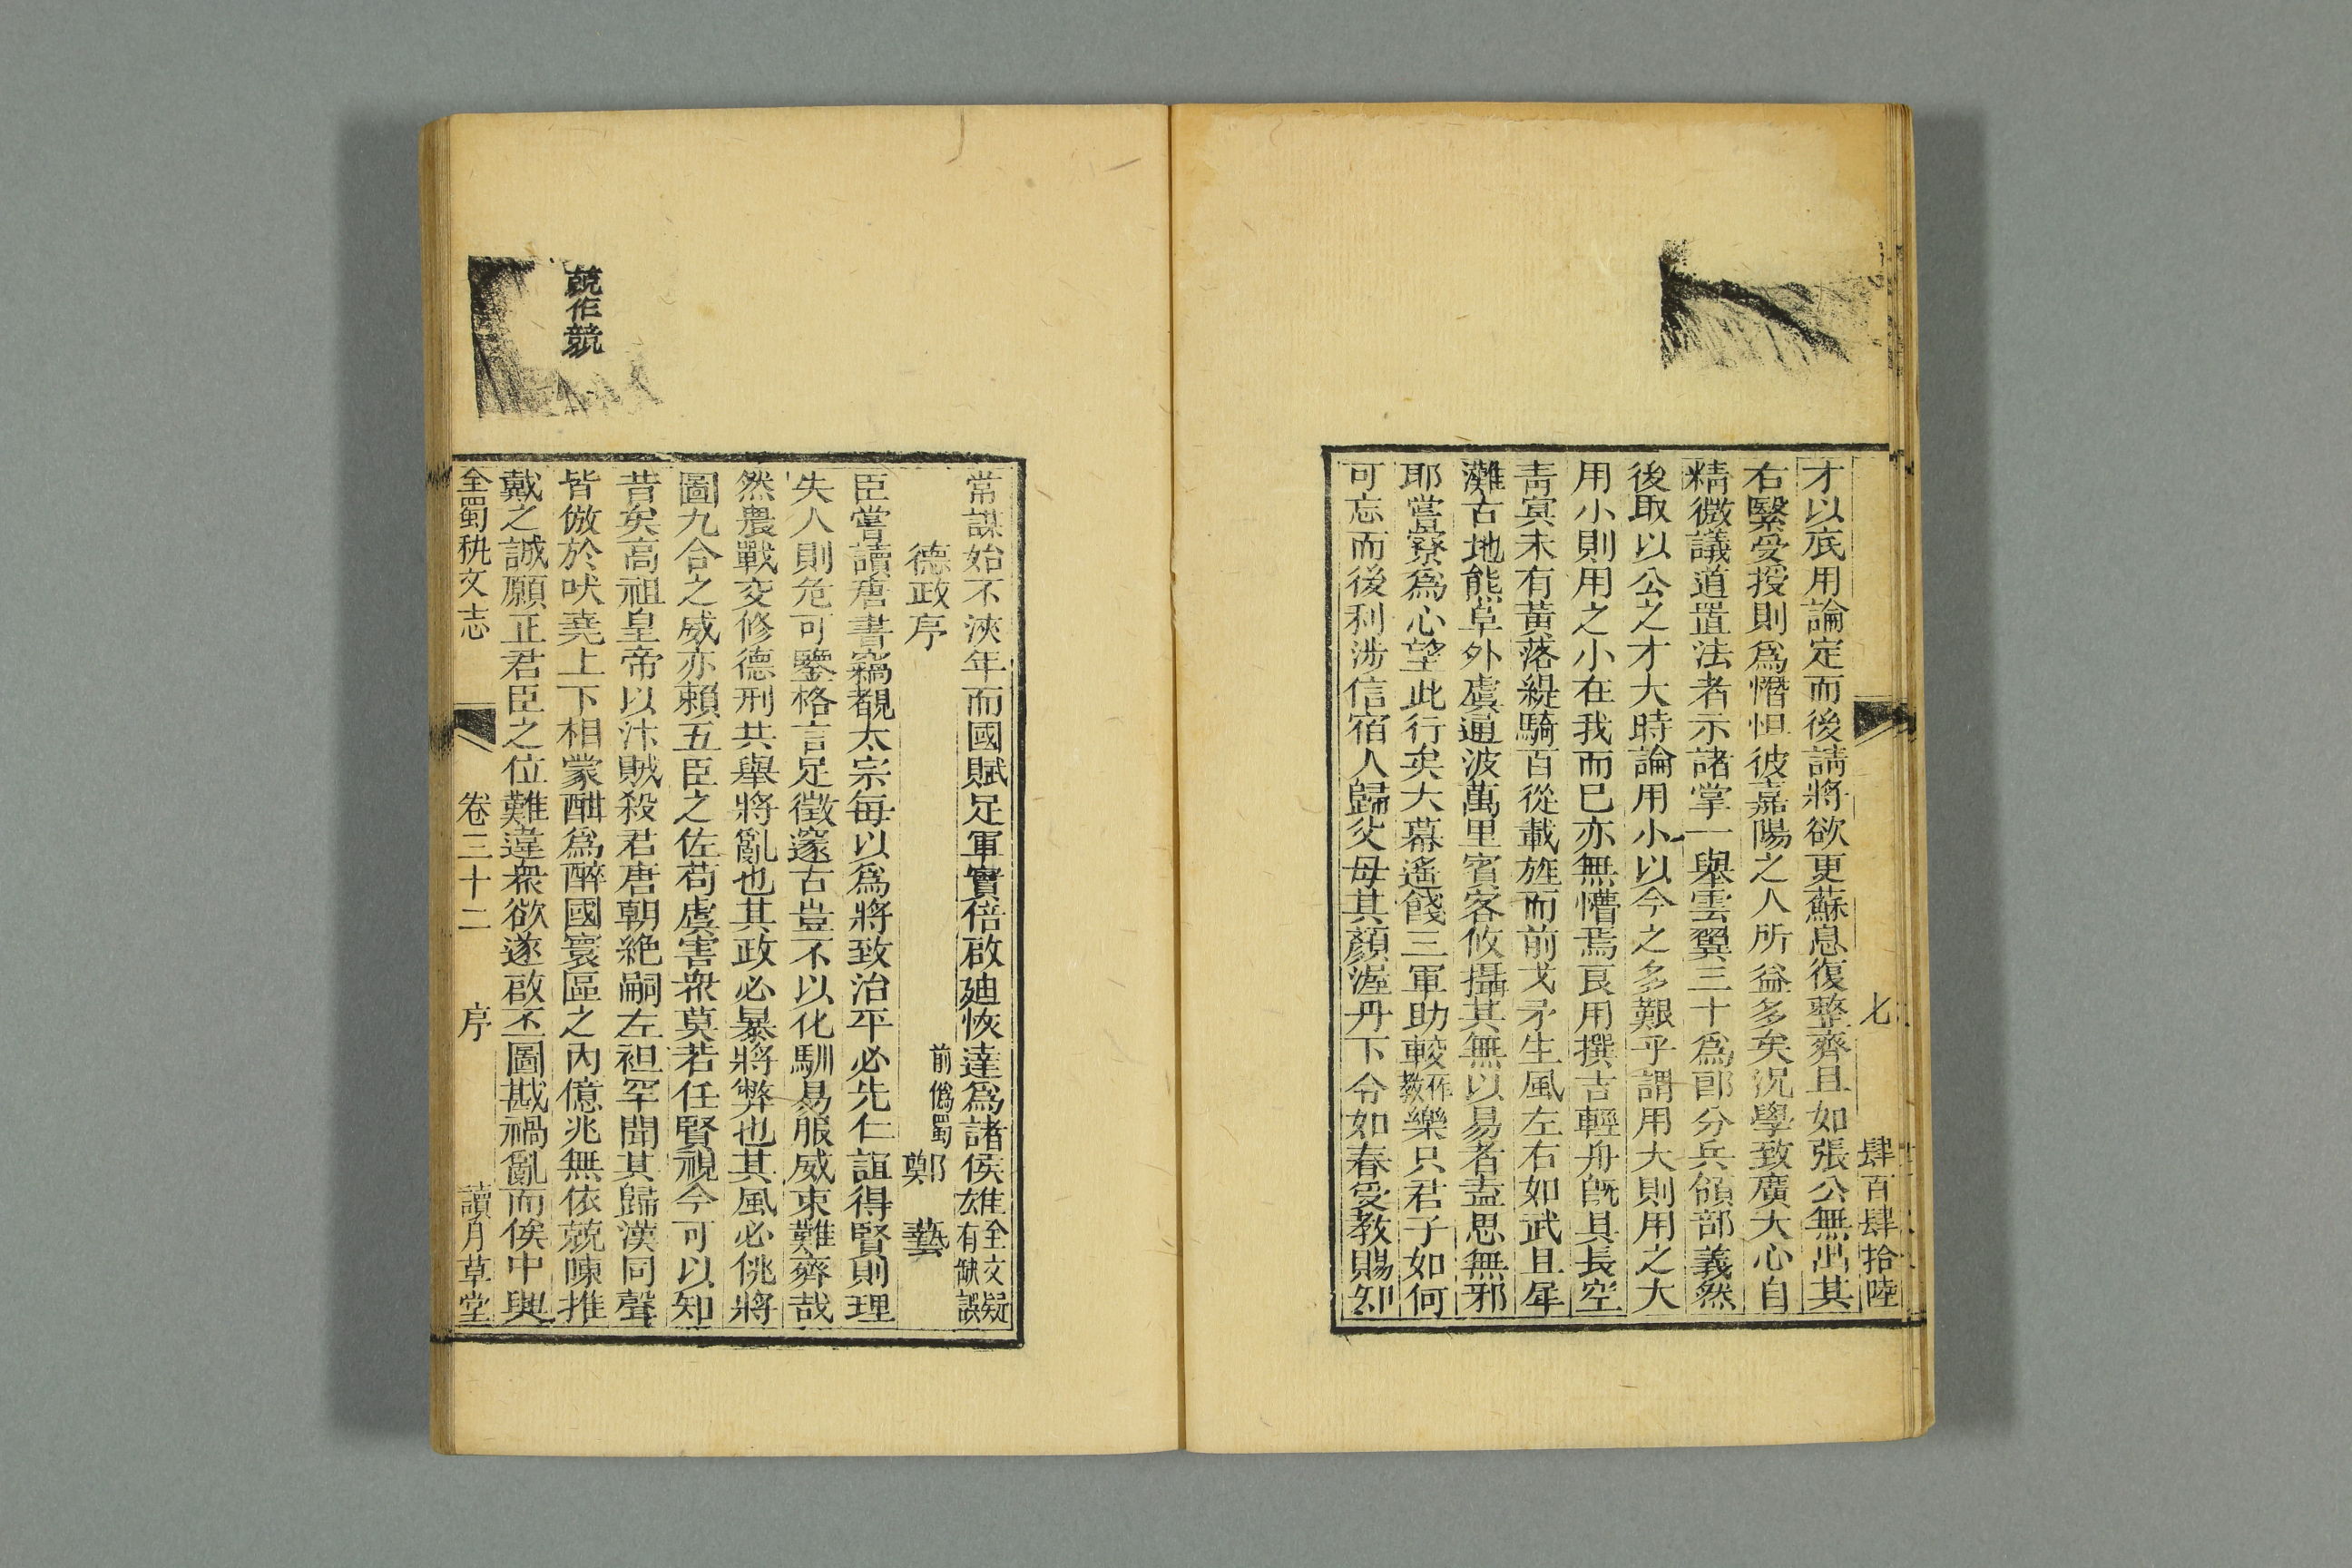 七　肆百肆拾陸
才以底用論定而後請將欲更蘇息復整齊且如張公無出其
右緊受授則爲憯怛彼嘉陽之人所益多矣況學致廣大心自
精微議道置法者示諸掌一舉雲翼三十爲郎分兵領部義然
後取以公之才大時論用小以今之多艱乎謂用大則用之大
用小則用之小在我而已亦無懵焉良用撰吉輕舟旣具長空
靑冥未有黃落緹騎百從載旌而前戈矛生風左右如武且犀
灘古地熊阜外虞通波萬里賓客攸攝其無以易者盍思無邪
耶嘗寮爲心望此行矣大幕遙餞三軍助較作敎樂只君子如何
可忘而後利涉信宿人歸父母其顏渥丹下令如春受教賜知
常謀始不浹年而國賦足軍實倍啟廸恢達爲諸侯雄全文疑有缺誤
德政序　前僞蜀　鄭　藝
臣嘗讀唐書竊覩太宗每以爲將致治平必先仁誼得賢則理
失人則危可鑒格言足徵邃古豈不以化馴易服威束難齊哉
然農戰交修德刑共舉將亂也其政必暴將弊也其風必佻將
圖九合之威亦賴五臣之佐苟虐害衆莫若任賢視今可以知
昔矣高祖皇帝以汴賊殺君唐朝絶嗣左袒罕聞其歸漢同聲
皆倣於吠堯上下相蒙酣爲醉國寰區之內億兆無依兢悚推
戴之誠願正君臣之位難違衆欲遂啟丕圖戡禍亂而俟中興
兢作競
全蜀秇文志　卷三十二　序　讀月草堂